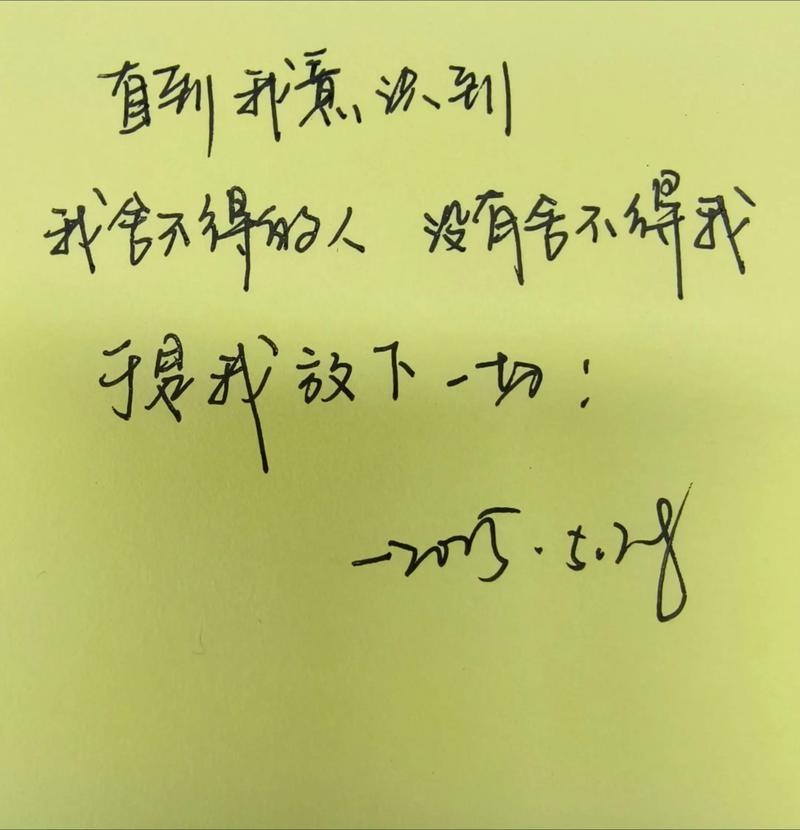 直到我意识到
我舍不得的人 没有舍不得我
于是我放下一切：
—2025.5.28